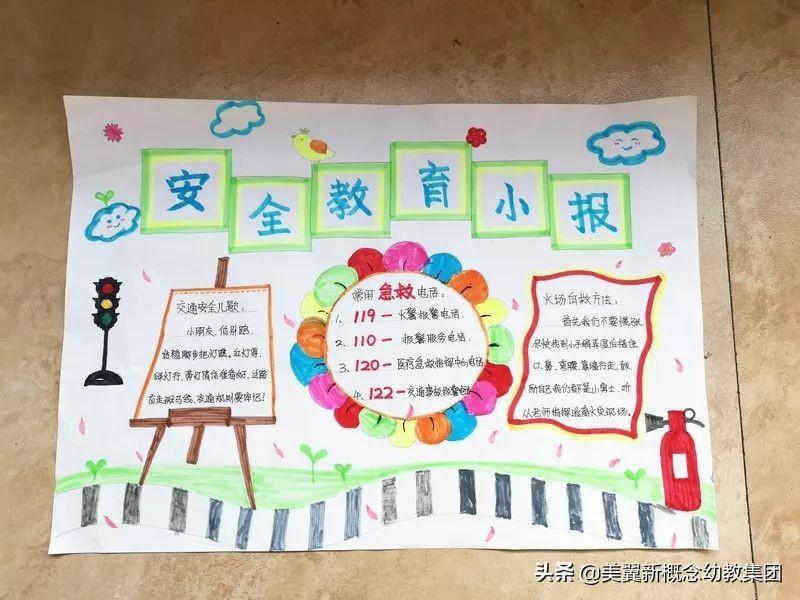 安全教育小报
交通安全儿歌：
小朋友，伯马路，
站稳脚步把灯瞧。红灯停，
绿灯行，黄灯请你准备好，过路
应走斑马线，交通规则要牢记！
常用急救电话：
1. 119－火警报警电话.
2. 110－报警服务电话.
3. 120－医疗急救指挥中心电话
4. 122－交通事故报警电话
火场自救方法：
首先我们不要慌张
尽快找到小手绢弄湿后捂住
口、鼻，弯腰，靠墙行走，鼓
励自己我们都是小勇士，听
从老师指挥逃离火灾现场。
头条 @美翼新概念幼教集团